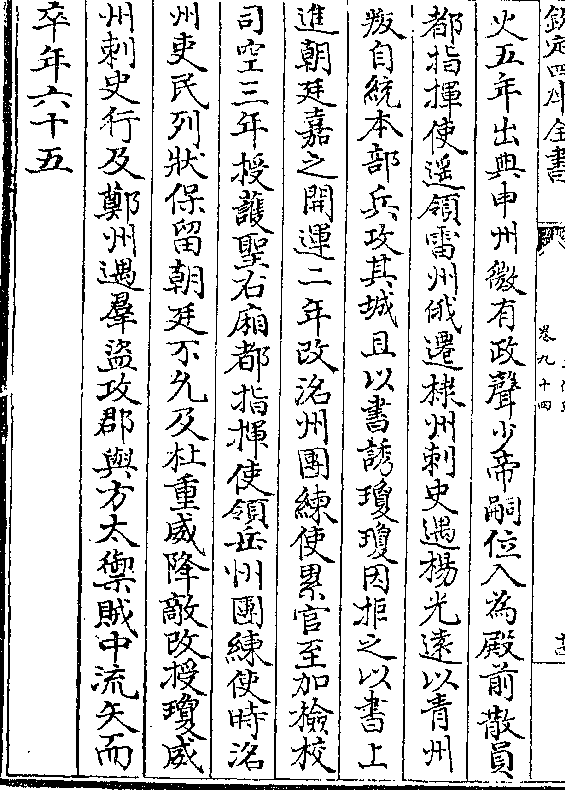 欽定四庫全書
卷九十四
火五年出典申州微有政聲少帝嗣位入為殿前散員
都指揮使遥領雷州俄遷棣州刺史遇楊光遠以青州
叛自統本部兵攻其城且以書誘瓊瓊因拒之以書上
進朝廷嘉之開運二年改洺州團練使累官至加檢校
司空三年授護聖右廂都指揮使領岳州團練使時洺
州吏民列狀保留朝廷不允及杜重威降敵改授瓊威
州刺史行及鄭州遇羣盜攻郡與方太禦賊中流矢而
卒年六十五